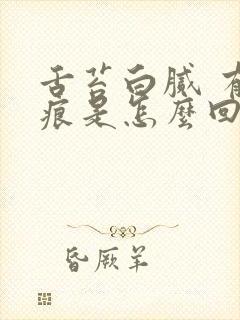 舌苔白腻 有
痕是怎麼回
昏厥羊